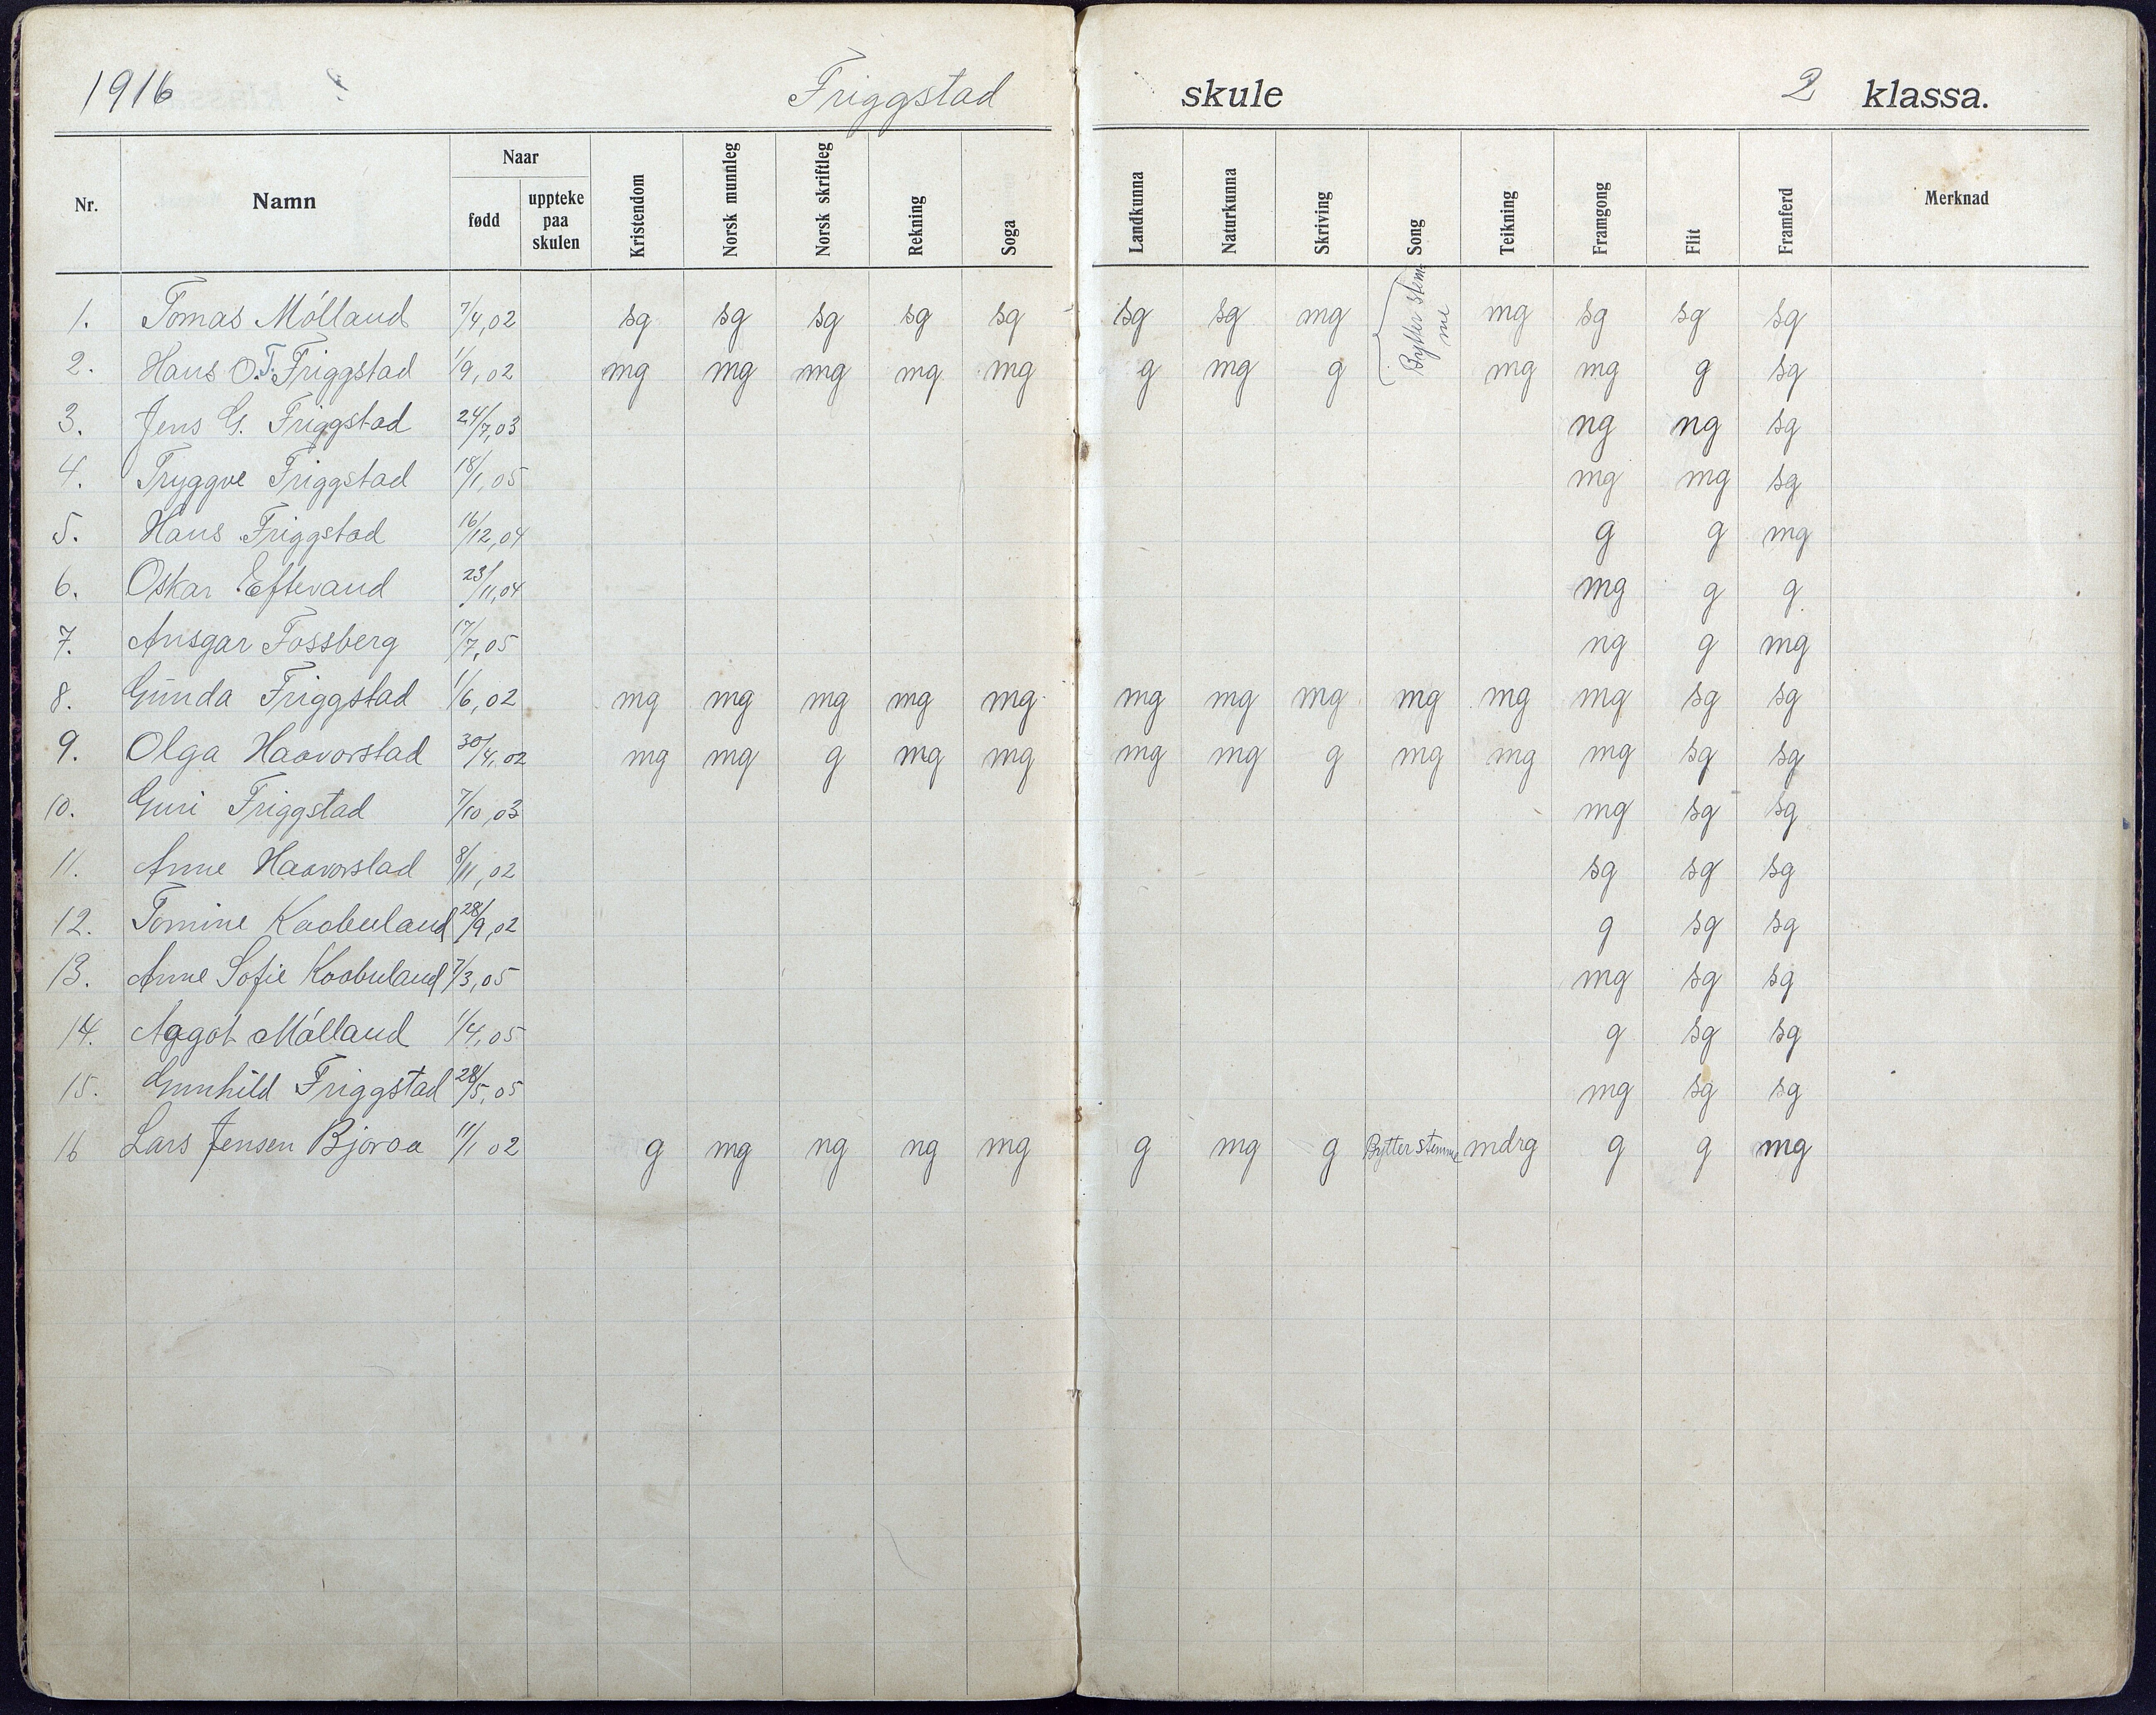 1916 Friggstad skule 2 klassa.
Nr. Namn Naar fødd uppteke paa skulen Kristendom Norsk munnleg Norsk skriftleg Rekning Soga Landkunna Naturkunna Skriving Song Teikning Framgong Flit Framferd Merknad
1. Tomas Mólland 7/4,02 sg sg sg sg sg sg sg mg Bytter stemme mg sg sg sg
2. Hans O.T. Friggstad 1/9,02 mg mg mg mg mg g mg g mg mg g sg
3. Jens G. Friggstad 24/7,03 ng ng sg
4. Tryggve Friggstad 18/1,05 mg mg sg
5. Hans Friggstad 16/12,04 g g mg
6. Oskar Eftevand 23/11,04 mg g g
7. Ansgar Fossberg 17/7,05 ng g mg
8. Gunda Friggstad 1/6,02 mg mg mg mg mg mg mg mg mg mg mg sg sg
9. Olga Haavorstad 30/4,02 mg mg g mg mg mg mg g mg mg mg sg sg
10. Guri Friggstad 7/10,03 mg sg sg
11. Anne Haavorstad 8/11,02 sg sg sg
12. Tomine Kaabuland 28/9,02 g sg sg
13. Anne Sofie Kaabuland 7/3,05 mg sg sg
14. Aagot Mólland 1/4,05 g sg sg
15. Gunhild Friggstad 28/5,05 mg sg sg
16 Lars Jensen Bjoraa 11/1 02 g mg ng ng mg g mg g Bytter stemme mdrg g g mg